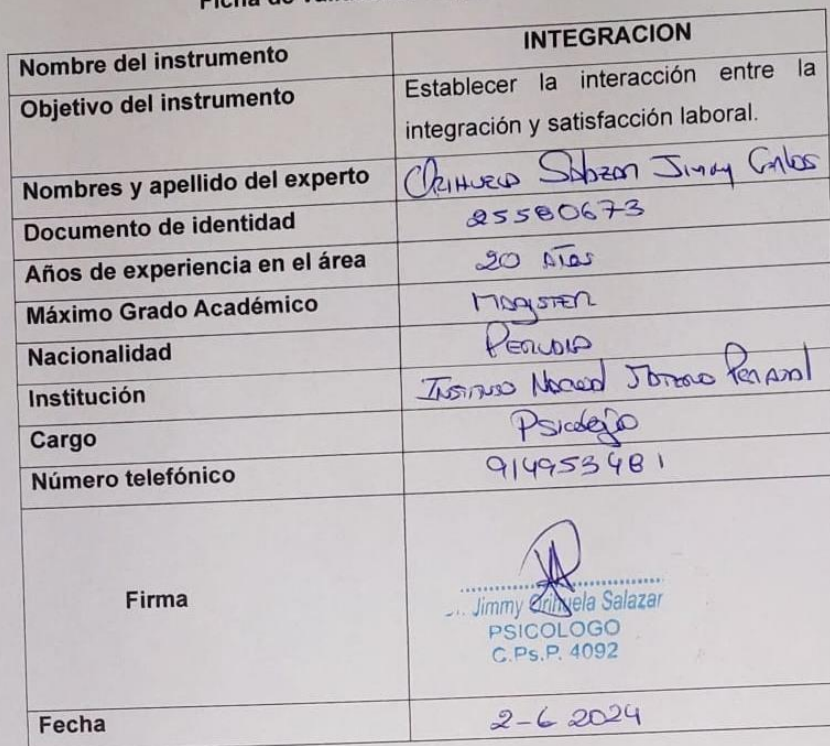 Ficha de
Nombre del instrumento INTEGRACION
Objetivo del instrumento Establecer la interacción entre la
integración y satisfacción laboral.
Nombres y apellido del experto Orihuela Salazar Jimmy Carlos
Documento de identidad 25580673
Años de experiencia en el área 20 años
Máximo Grado Académico Magister
Nacionalidad Peruana
Institución Instituto Nacional Penal
Cargo Psicólogo
Número telefónico 914953481
Firma
Jimmy Orihuela Salazar
PSICOLOGO
C.Ps.P. 4092
Fecha 2-6 2024